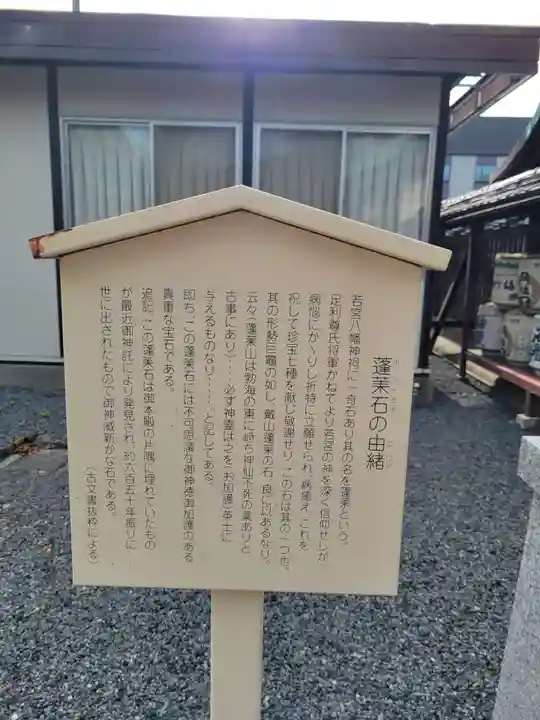 蓬莱石の由緒
若宮八幡神祠に一奇石あり其の名を蓬莱という。
足利尊氏将軍かねてより若宮の神を深く信仰せしが
病悩にかゝりしし折特に立願せられ、病癒え、これを
祝して珍宝七種を献じ敬謝せり、この石は其の一つ也。
其の形勢巨鼇の如し、戴山蓬莱の石、良に以あるなり。
云々(蓬莱山は勃海の東に峙ち神仙不死の薬ありと
古事にあり)…必ず神霊は之を(お加護)英士に
与えるものなり……。と記してある。
即ち、この蓬莱石には不可思議な御神徳御加護のある
貴重な宝石である。
追記、この蓬莱石は御本殿の片隅に埋れていたもの
が最近御神託により発見され、約六百五十年振りに
世に出されたもので御神威新かな石である。
(古文書抜粋による)